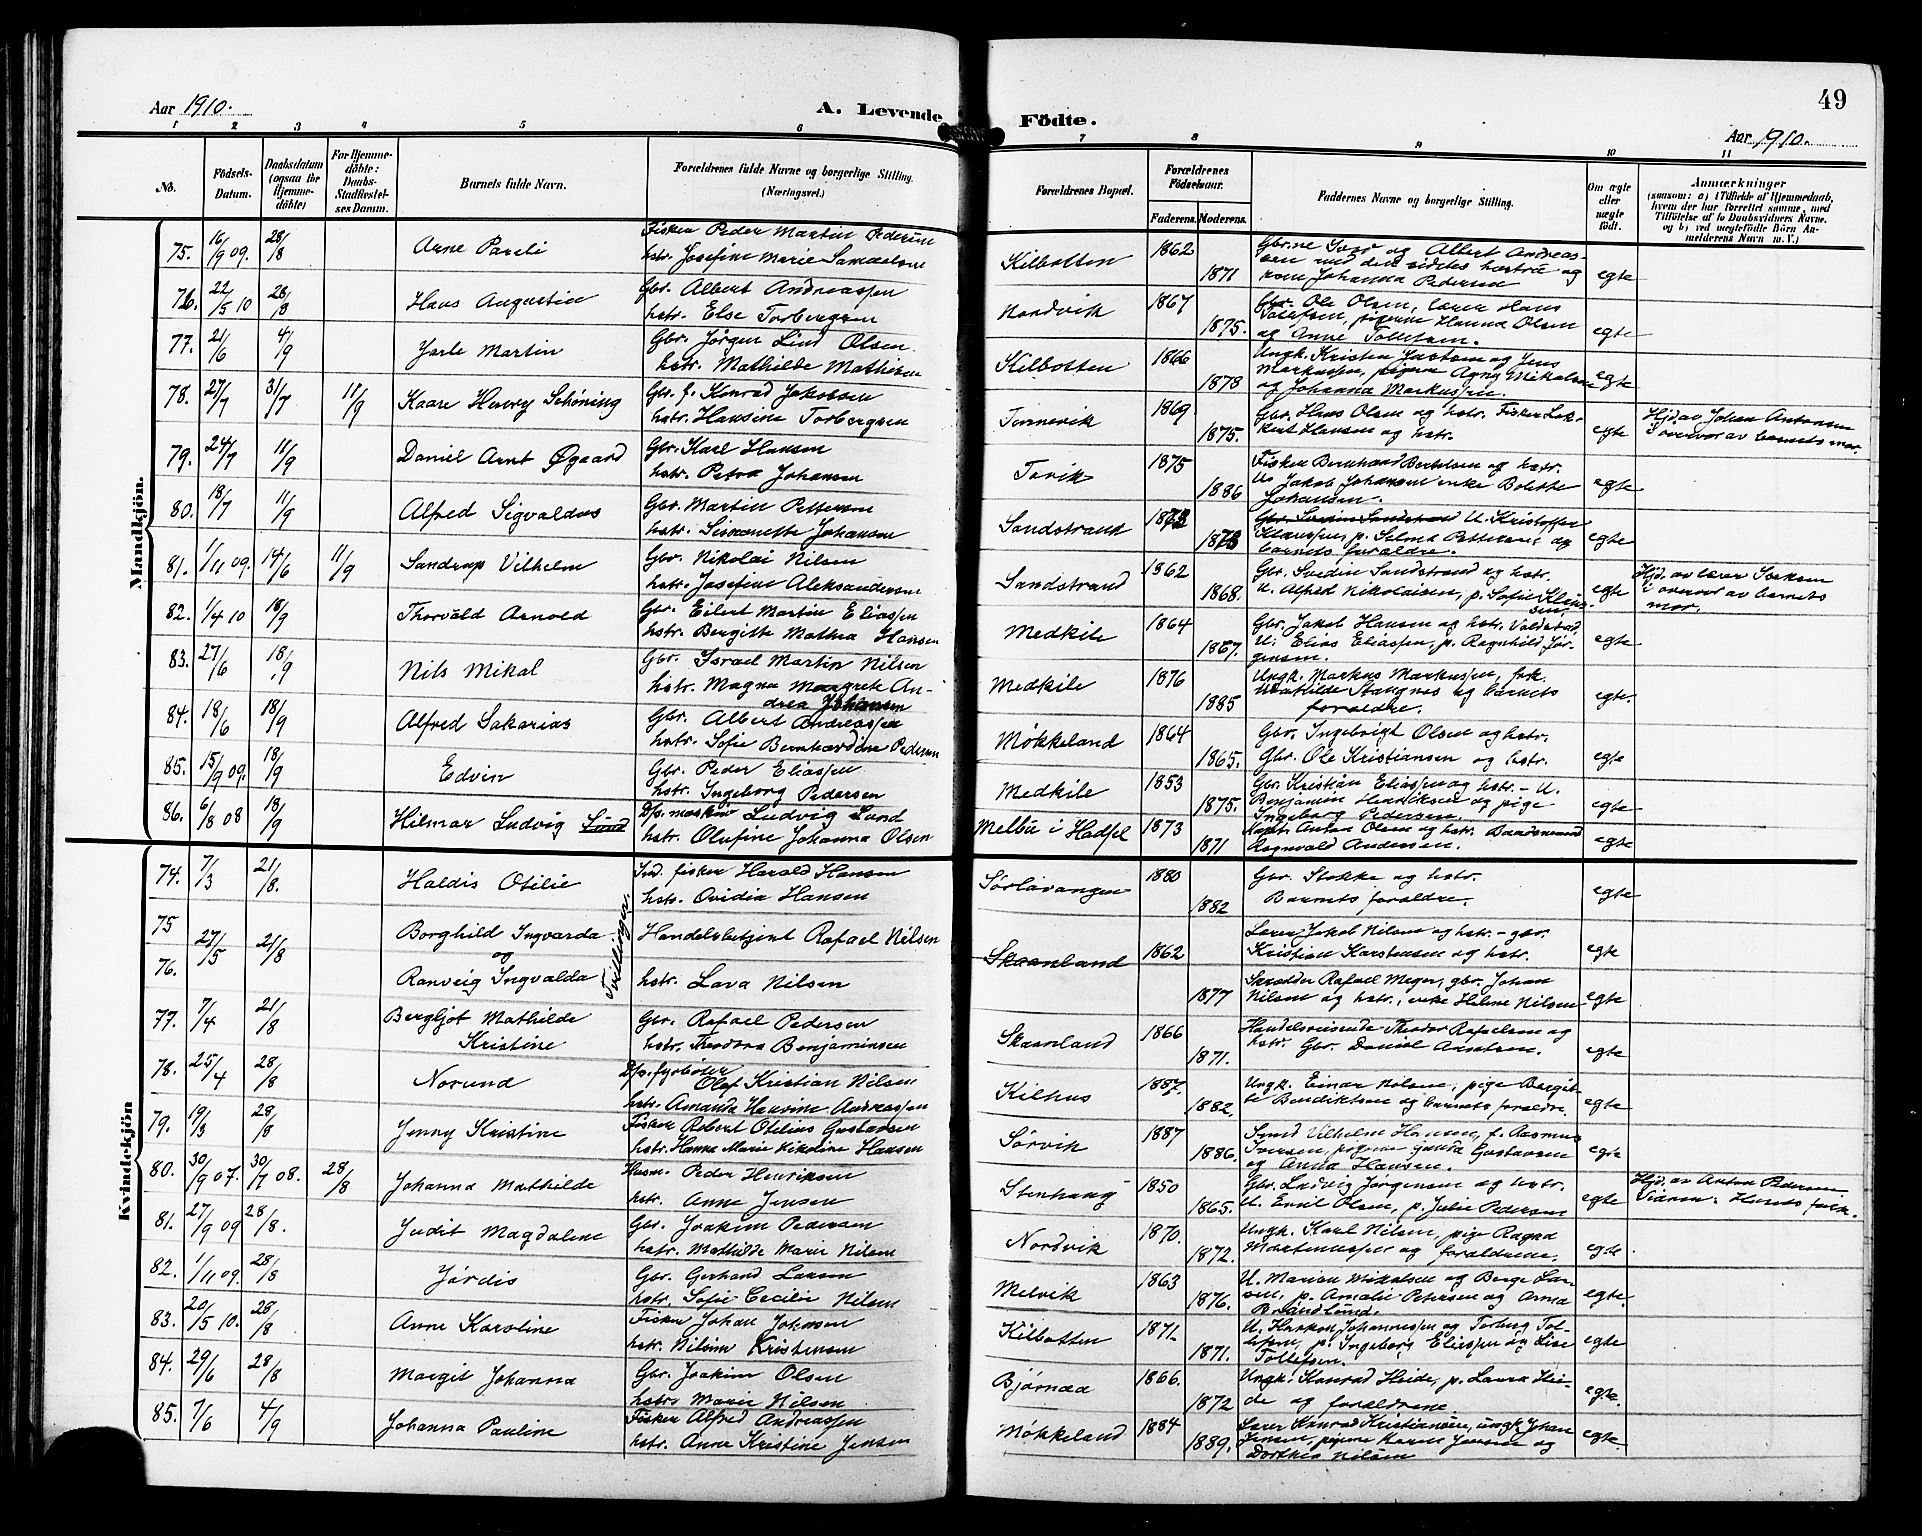 49
Aar 1910.
A. Levende Födte.
Aar 1910.
1 2 3 4 5 6 7 8 9 10 11
No. Födsels-Datum. Daabsdatum (ogsaa for Hjemmedöbte) For Hjemmedöbte: Daabs-Stadfæstelses Datum. Barnets fulde Navn. Forældrenes fulde Navne og borgerlige Stilling. (Næringsvei.)
Forældrenes Bopæl. Forældrenes Födselsaar. Faderens. Moderens. Faddernes Navne og borgerlige Stilling. Om ægte eller uægte födt. Anmærkninger (saasom: a) i Tilfælde af Hjemmedaab, hvem der har forrettet samme, med Tilföielse af to Daabsvidners Navne, og b) ved uægtefödte Börn Anmelderens Navn m. V.)
Mandkjön.
75. 16/9 09. 28/8 Arne Pareli Fisker Peder Martin Pedersen
hstr. Josefine Marie Samuelsen
Kilbotten 1862 1871 og Albert Andreassen med den sidstes hustru og Johanna Pedersen egte
76. 22/5 10 28/8 Hans Augustin Gbr. Albert Andreassen
hstr. Else Torbergsen
Nordvik 1867 1875. Gbr. Ole Olsen, lærer Hans Tollefsen, pigerne Hanna Olsen og Anne Tollefsen. egte
77. 21/6 4/9 Jarle Martin Gbr. Jørgen Lind Olsen
hstr. Mathilde Mathisen
Kilbotten 1866 1878 Ungk. Kristen Justsen og Jens Markussen, pigerne Agny Mikalsen og Johanna Markussen. egte
78. 27/7 31/7 11/9 Kaare Henry Schöning Gbr. f. Konrad Jakobsen
hstr. Hansine Torbergsen
Tennevik 1869 1875. Gbr. Hans Olsen og hstr. Fisker Lokkert Hansen og hstr. egte Hjd. av Johan Antonsen i overvær av barnets mor.
79. 24/7 11/9 Daniel Arnt Øgaard Gbr. Karl Hansen
hstr. Petra Johansen
Tovik 1875 1886 Fisker Bernhard Bertelsen og hstr. U. Jakob Johansen enke Bolette Johansen. egte
80. 18/7 11/9 Alfred Sigvaldus Gbr. Martin Pettersen
hstr. Simonette Johansen
Sandstrand 1873 1878 U. Kristoffer Klaussen, p. Selma Pettersen, og barnets forældre. egte
81. 1/11 09. 14/6 11/9 Sandrup Vilhelm Gbr. Nikolai Nilsen
hstr. Josefine Aleksandersen
Sandstrand 1862 1868. Gbr. Svedin Sandstrand og hstr. U. Alfred Nikolaisen, p. Sofie Klaussen egte Hjd. av lærer Isaksen i overvær av barnets mor.
82. 1/4 10 18/9 Thorvald Arnold Gbr. Eilert Martin Eliassen
hstr. Bergitte Mathea Hansen
Medkile 1864 1867. Gbr. Jakob Hansen og hstr. Valdstad, U. Elias Eliassen, p. Ragnhild Jørgensen. egte
83. 27/6 18/9 Nils Mikal Gbr. Israel Martin Nilsen
hstr. Magna Margrete Andrea Johansen
Medkile 1876 1885 Ungk. Markus Markussen, frk. Mathilde Stangnes og barnets forældre. egte.
84. 18/6 18/9 Alfred Sakarias Gbr. Albert Andreassen
hstr. Sofie Bernhardine Pedersen
Møkkeland 1864 1865. Gbr. Ingebrigt Olsen og hstr. Gbr. Ole Kristiansen og hstr. egte
85. 15/9 09. 18/9 Edvin Gbr. Peder Eliassen
hstr. Ingeborg Pedersen
Medkile 1853 1875. Gbr. Kristian Eliassen og hstr. - U. Benjamin Henriksen og pige Ingeborg Pedersen. egte
86. 6/8 08 18/9 Hilmar Ludvig Lund D/s. maskin Ludvig Lund
hstr. Olufine Johanna Olsen
Melbu i Hadsel 1873 1871 Anton Olsen og hstr. Ragnvald Andersen. egte
Kvindekjön
74. 7/3 21/8. Haldis Otilie Ind. fisker Harald Hansen
hstr. Ovidia Hansen
Sørlavangen 1880 1882 Gbr. Stokke og hstr. Barnets forældre. egte
75 27/5 21/8 Borghild Ingvarda Handelsbetjent Rafael Nilsen
og
76. Ranveig Ingvalda hstr. Lava Nilsen
Tvillinger.
Skaanland 1862 Lærer Jakob Nilsen og hstr. - gbr. Kristian Karstensen og hstr. egte
1877 Skrædder Rafael Meyer, gbr. Johan Nilsen og hstr., enke Helene Nilsen egte
77. 7/4 21/8 Bergljot Mathilde Kristine Gbr. Rafael Pedersen
hstr. Theodora Benjaminsen
Skaanland 1866 1871. Handelsreisende Theodor Rafaelsen og hstr. Gbr. Daniel egte
78. 25/4 28/8 Norund D/s. fyrbøter Olaf Kristian Nilsen
hstr. Amanda Hansine Andreassen
Kilhus 1887. 1882. Ungk. Einar Nilsen, pige Bergitte Bendiktsen og barnets forældre. egte
79. 19/3 28/8 Jenny Kristine Fisker Robert Otelius Gustavsen
hstr. Hanna Marie Nikoline Hansen
Sørvik 1887 1886. Smed Vilhelm Hansen, f. Rasmus Iversen, pigerne Gustavsen og Anna Hansen. egte
80. 30/9 07. 30/7 08. 28/8 Johanna Mathilde Husm. Peder Henriksen
hstr. Anne Jensen
Stenhaug 1850 1865. Gbr. Ludvig Jørgensen og hstr. U. Emil Olsen, p. Julie Pedersen egte Hjd. av Anton Pedersen
81. 27/9 09 28/8. Judit Magdalene Gbr. Joakim Pedersen
hstr. Mathilde Marie Nilsen
Nordvik 1870. 1872. Ungk. Karl Nilsen, pige Ragna Martinussen og forældrene. egte.
82. 1/11 09. 28/8 Jørdis Gbr. Gerhard Larsen
hstr. Sofie Cecilie Nilsen
Melvik 1863 1876. U. Marius Mikalsen og Berge Larsen, p. Amalie Petersen og Anna Brandlund. egte.
83. 20/5 10. 28/8 Anne Karoline Fisker Johan Johnsen
hstr. Nilsine Kristensen
Kilbotten 1871. 1871. U. Haakon Johannessen og Torberg Tollefsen, p. Ingeborg Eliassen og Lise Tollefsen. egte
84. 29/6 28/8 Margit Johanna Gbr. Joakim Olsen
hstr. Marie Nilsen
Bjørnaa 1866. 1872 Ungk. Konrad Heide, p. Laura Heide og forældrene. egte.
85. 7/6 4/9 Johanna Pauline Fisker Alfred Andreassen
hstr. Anne Kristine Jensen
Møkkeland 1884 1889. Lærer Konrad Kristiansen, ungk. Johan Jensen, pigerne Karen Jensen og Dorthea Nilsen egte.